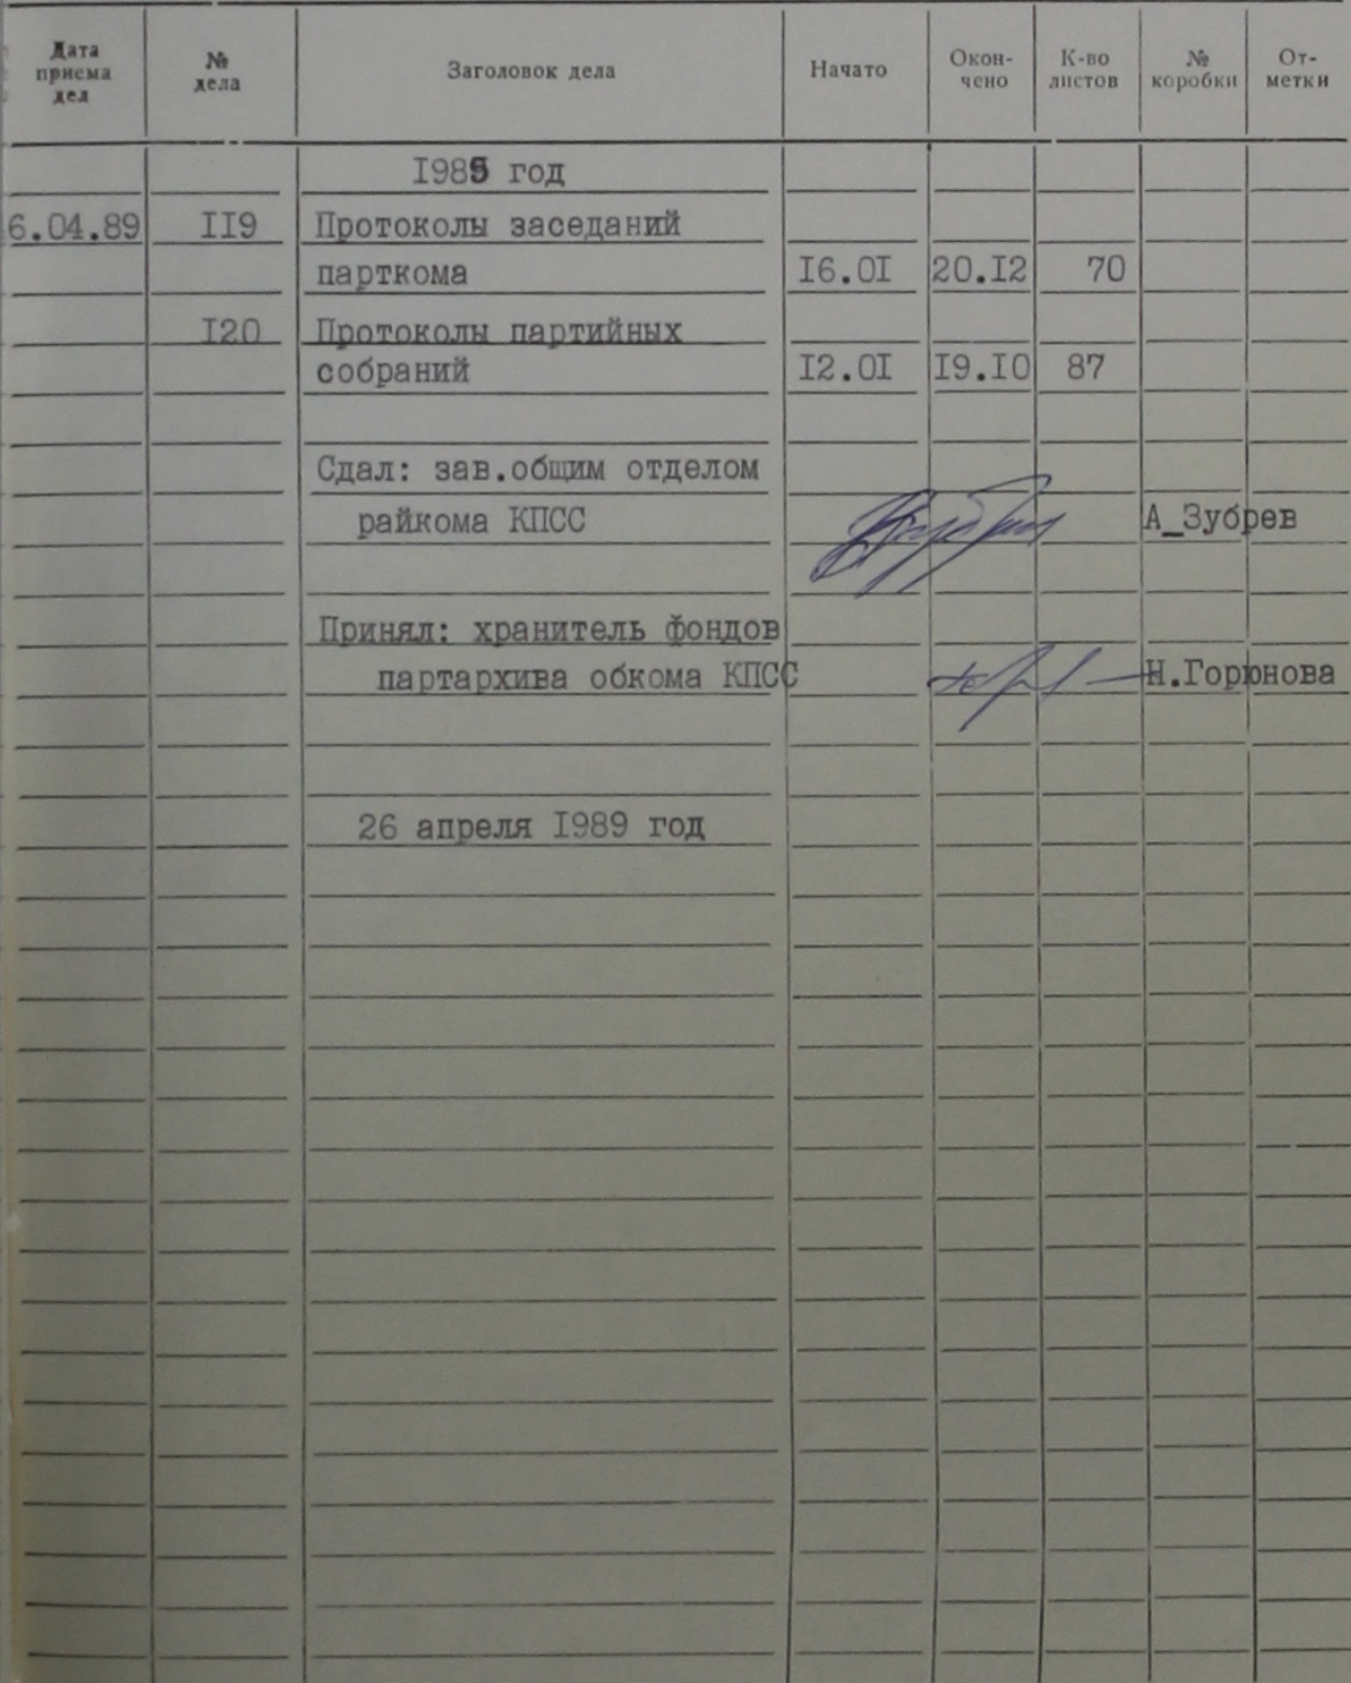 Дата приема дел № дела Заголовок дела Начато Окон- чено К-во листов № коробки От- метки
1985 год
6.04.89 119 Протоколы заседаний
парткома 16.01 20.12 70
120 Протоколы партийных
собраний 12.01 19.10 87
Сдал: зав.общим отделом
райкома КПСС А_Зубрев
Принял: хранитель фондов
партархива обкома КПСС Н.Горюнова
26 апреля 1989 год